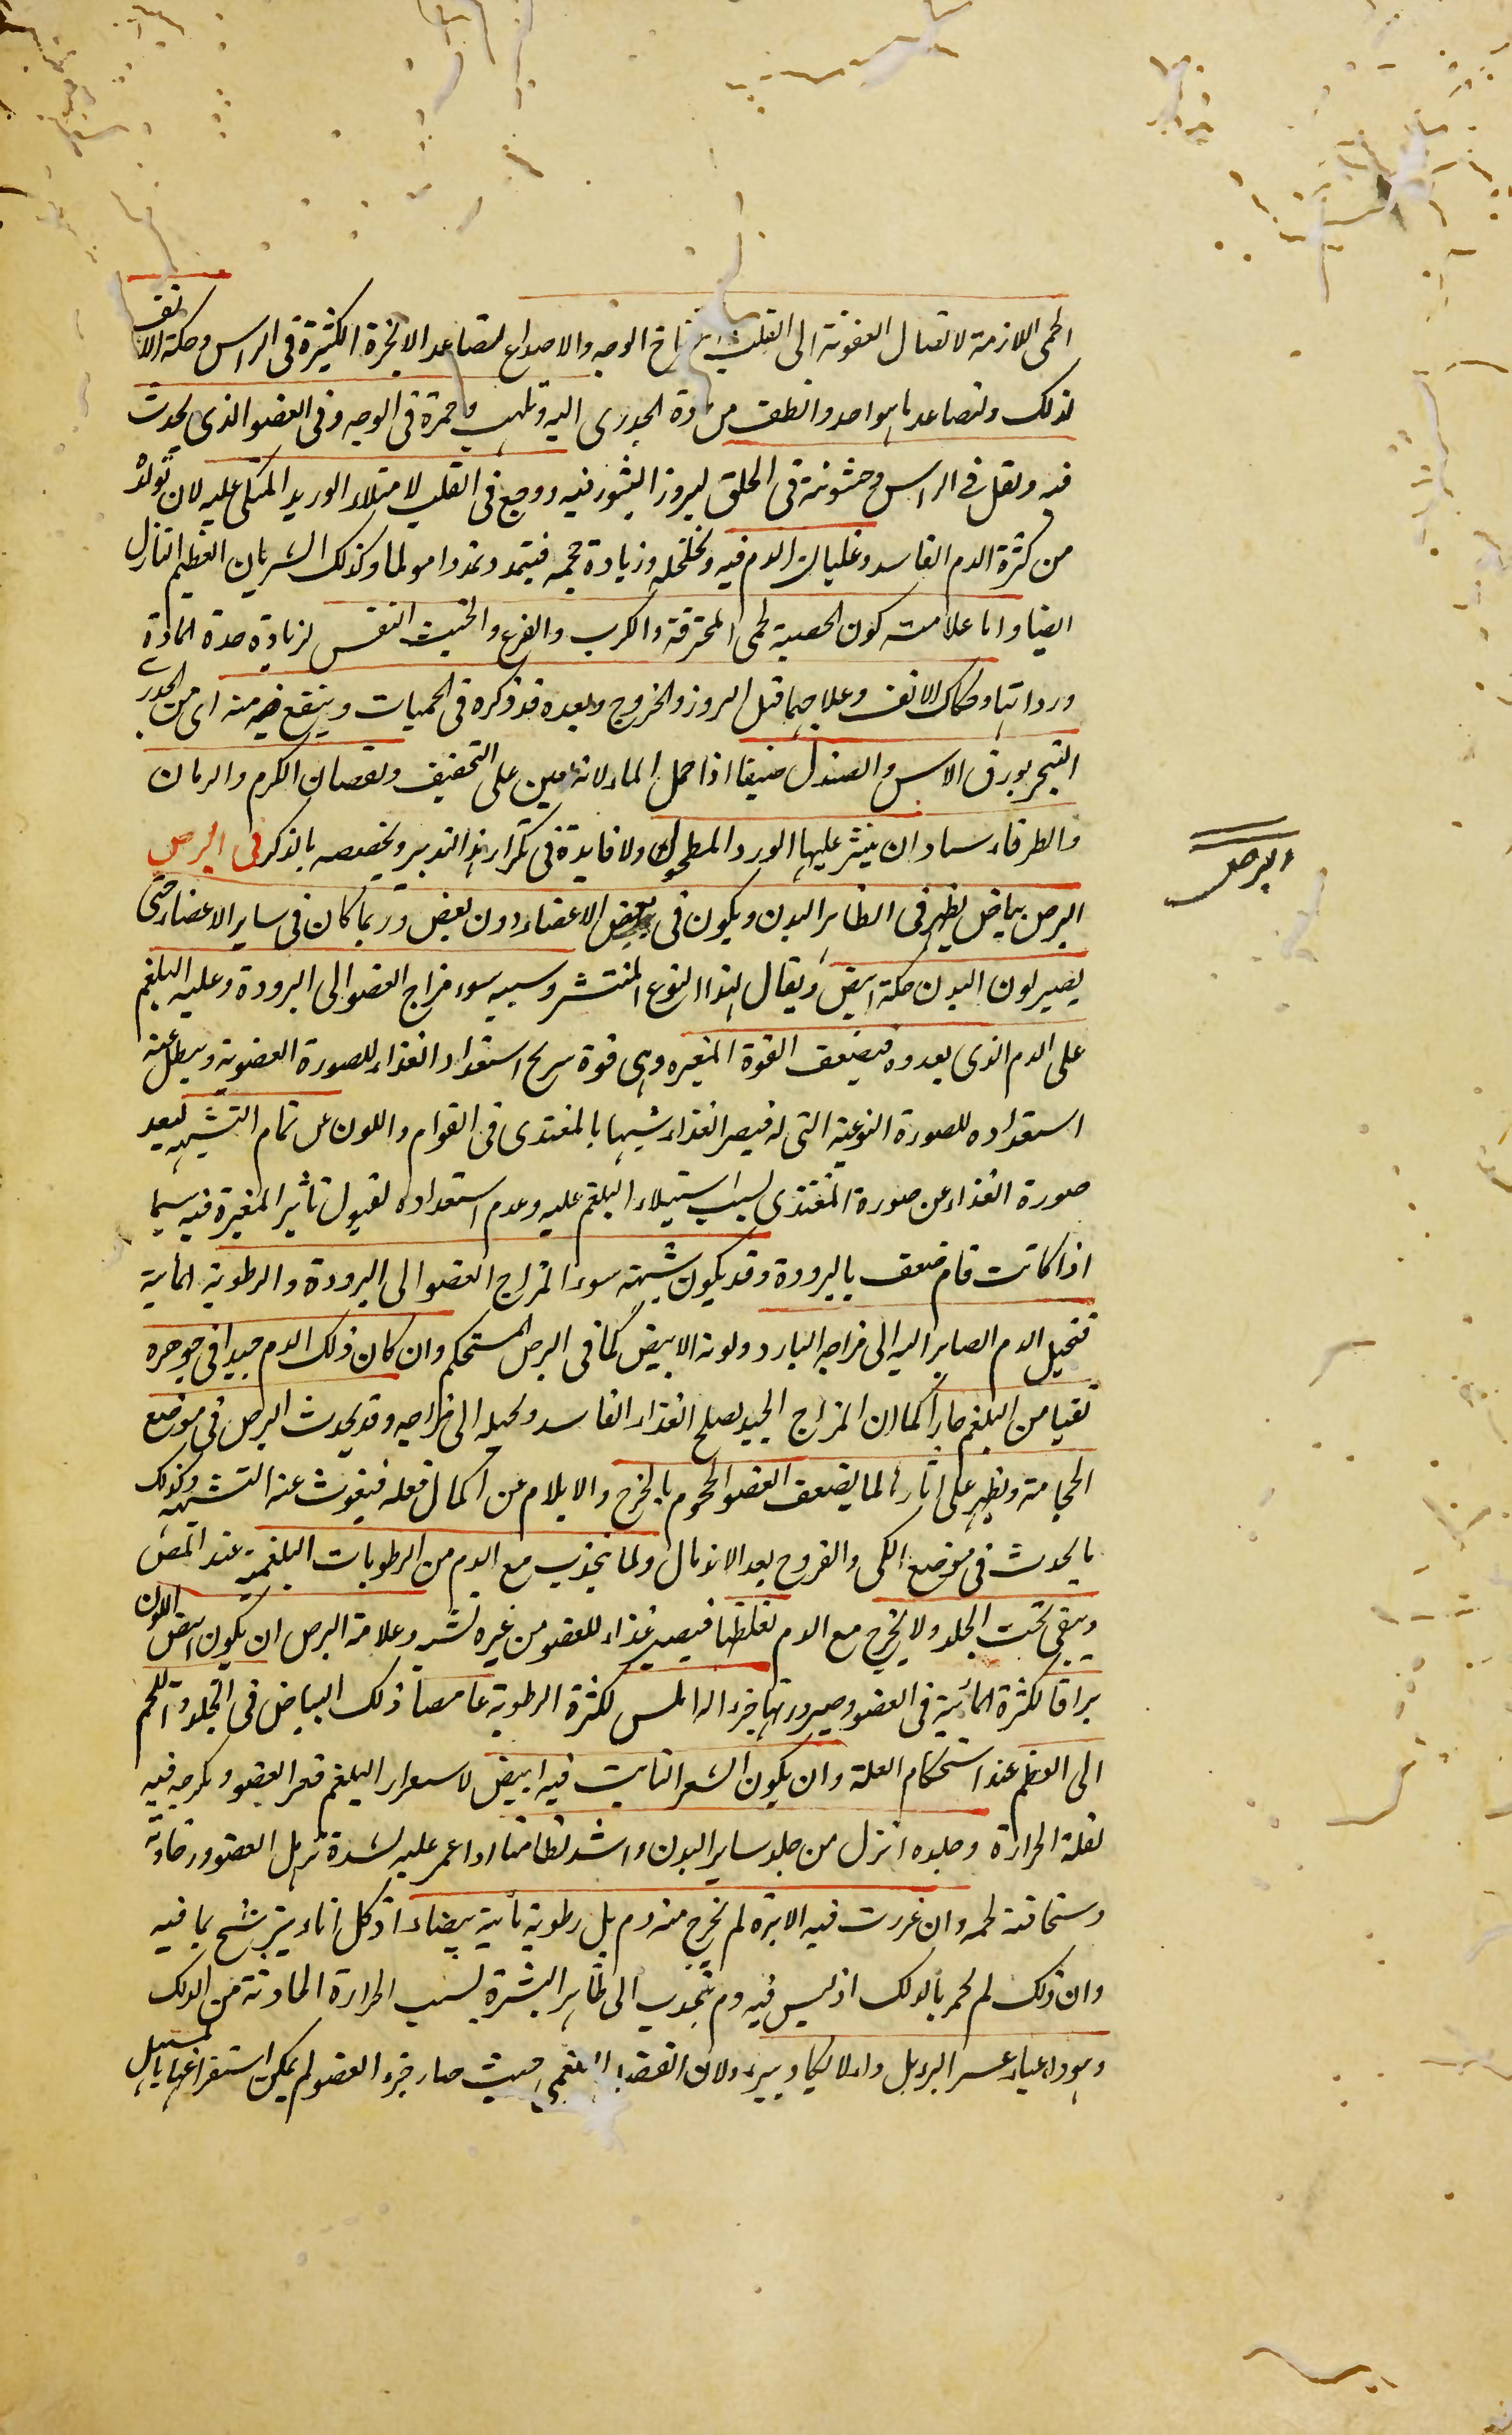 الحمى اللازمة لاتصال العفونة الى القلب انتفاخ الوجه والاصداع لتصاعد الابخرة الكثيرة فى الراس وحكة الانف
لذلك ولتصاعد ما هو احد والطف من مادة الجدرى اليه وتلهب وحمرة فى الوجه وفى العضو الذى يحدث
فيه وثقل فى الراس وخشونة فى الحلق لبروز البثور فيه ووجع فى القلب لامتلاء الوريد المتكى عليه لان تولده
من كثرة الدم الفاسد وغليان الدم فيه وتخلخله وزيادة حجمه فيتمدد تمددا مولما وكذلك الشريان العظيم النازل
ايضا واما علامت كون الحصبة لحمى المحترقة والكرب والفزع والخبث النفس لزيادة حدة المادة
ورداتها وحكاك الانف وعلاجهما قبل البروز والخروج وبعده قد ذكره فى الحميات وينفع فيه منه اى من الجدرى
التبخر بورق الاس والصندل صيفا اذا حمل الماء لانه معين على التخفيف وبقضبان الكرم والرمان
والطرفاء وان ينثر عليها الورد المطحون ولا فايدة فى تكرار هذا التدبير وتخصيصه بالذكر فى البرص
البرص بياض يظهر فى الظاهر البدن ويكون فى بعض الاعضاء دون بعض وربما كان فى ساير الاعضاء حتى
يصير لون البدن كله ابيض ويقال لهذا النوع المنتشر وسببه سوء مزاج العضو الى البرودة وغلبة البلغم
على الدم الذى يغدوه فيضعف القوة المغيره وهى قوة استعداد الغذاء للصورة العضوية ويبطل عنه
استعداده للصورة النوعية التى له فيصير الغذاء شبيها بالمغتذى فى القوام واللون عن تمام التشبيه لبعد
صورة الغذاء عن صورة المغتذى بسبب استيلاء البلغم عليه وعدم استعداده لقبول تاثير المغيرة فيه سيما
اذا كانت ضعف بالبرودة وقد يكون سوء المزاج العضو الى البرودة والرطوبة المائية
فتحيل الدم الصاير اليه الى مزاجه البارد ولونه الابيض كما فى البرص المستحكم وان كان ذلك الدم جيدا فى جوهره
نقيا من البلغم حارا كما ان المزاج الجيد يصلح الغذاء الفاسد ويحيله الى مزاجه وقد يحدث البرص فى موضع
الحجامة ويظهر على اثارها لما يضعف العضو المحجوم بالجرح والايلام عن اكمال فعله فيفوت عنه التشبيه وكذلك
ما يحدث فى موضع الكى والقروح بعد الاندمال ولما ينجذب مع الدم من الرطوبات البلغمية عند المص
ويبقى تحت الجلد ولا يخرج مع الدم لغلظها فيصير غذاء للعضو من غيره تشبه وعلامة البرص ان يكون ابيض اللون
براقا لكثرة المائية فى العضو وصيرورتها جزء له املس لكثرة الرطوبة غامصا ذلك البياض فى الجلد واللحم
الى العظم عند استحكام العلة وان يكون الشعر النابت فيه ابيض لاستقرار البلغم قعر العضو وخروجه فيه
لقلة الحرارة وجلده انزل من جلد ساير البدن واشد تطامنا اذا غمز عليه لشدة ترهل العضو ورخاوته
وسخافة لحمه وان غررت فيه الابرة لم يخرج منه دم بل رطوبة مائية بيضاء اذ كل اناء يترشح بما فيه
وان ذلك لم يحمر بالدلك اذ ليس فيه دم ينجذب الى ظاهر البشرة بسبب الحرارة الحادثة من الدلك
وهو داء عياء عسر البرء بل داء لا يكاد يبرء ولان الفضل البلغمى حيث صار جزء العضو لم يكن استفراغها بالمسهل
البرص